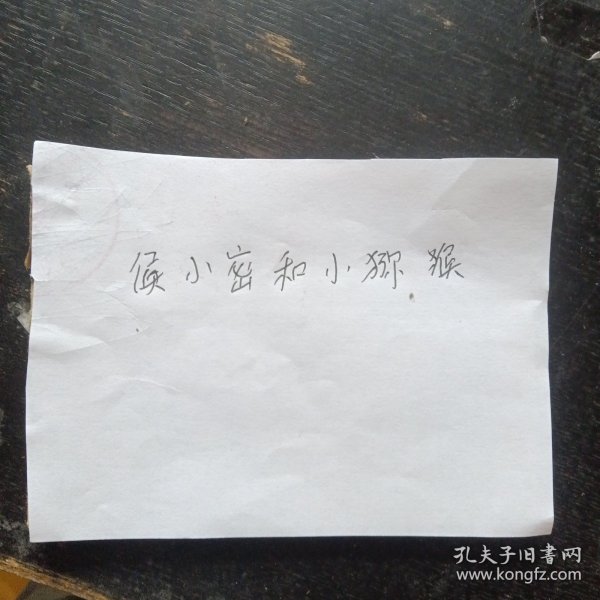 侯小密和小猕猴
孔夫子旧書网
www.kongfz.com